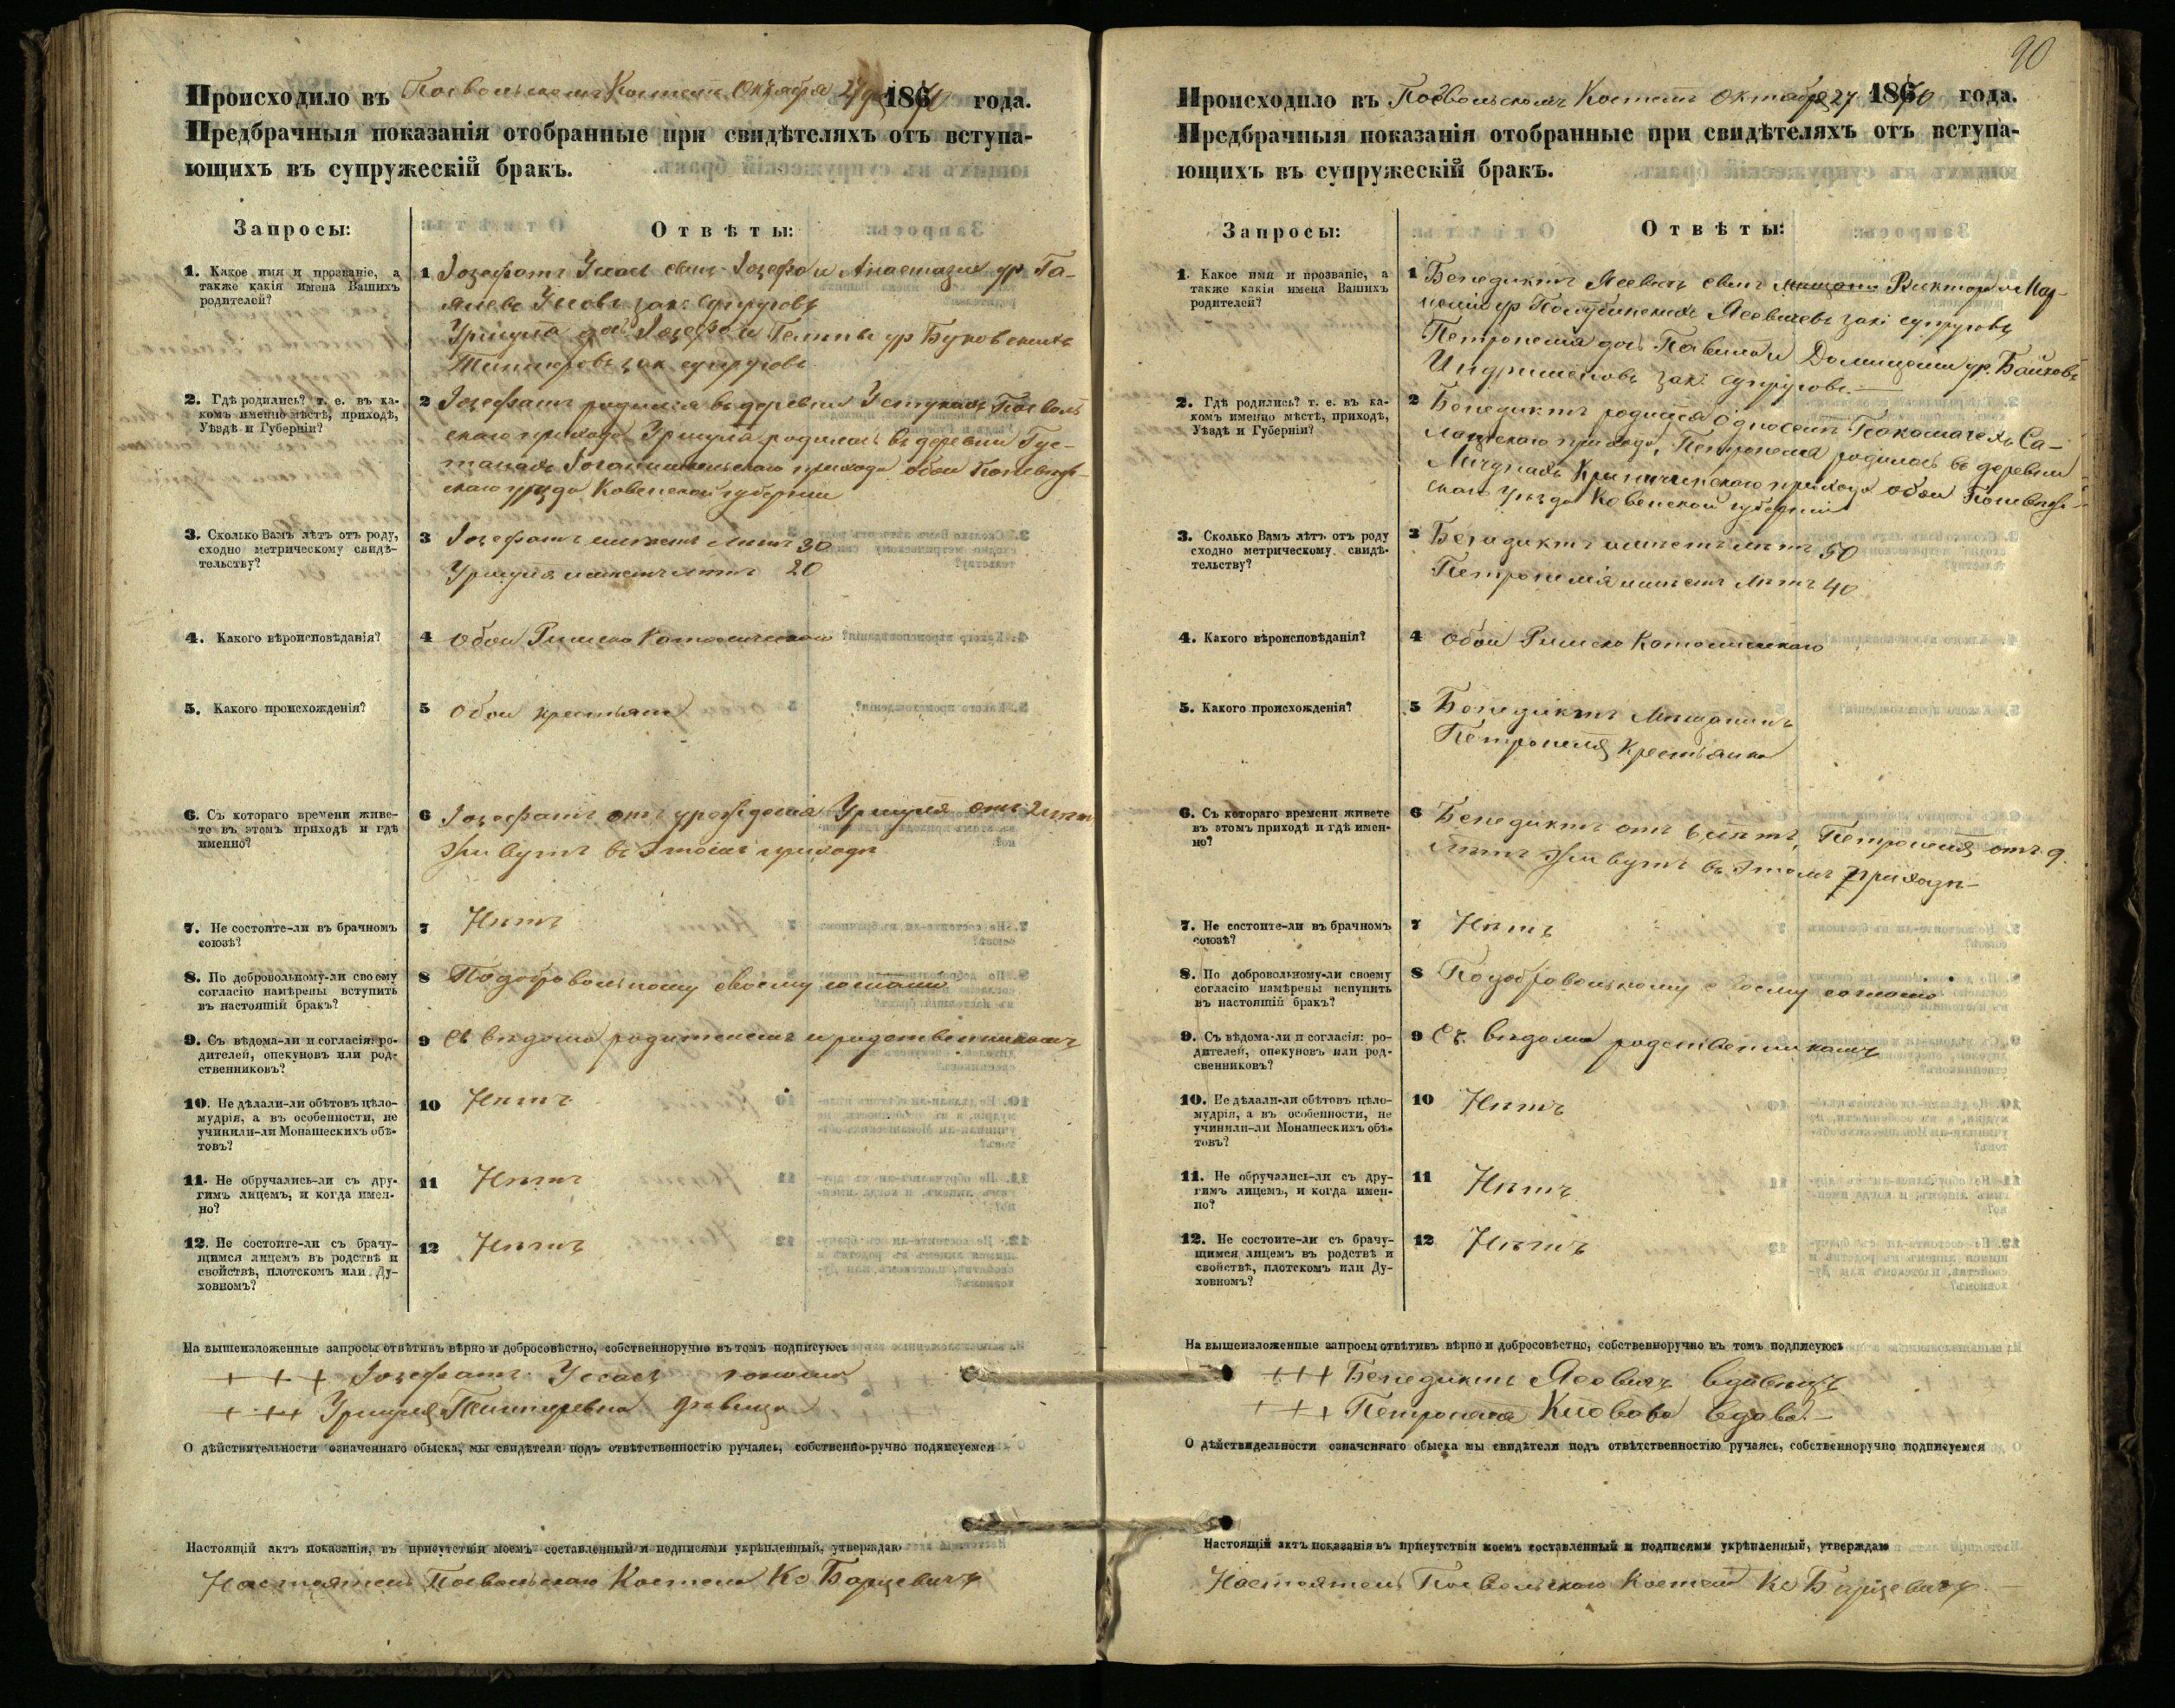 Происходило въ Посвольскомъ Костелѣ Октября 27 дня 1870 года.
Предбрачныя показанія отобранные при свидѣтеляхъ отъ вступа-
ющихъ въ супружескій бракъ.
Запросы:
Отвѣты:
1. Какое имя и прозваніе, а
также какія имена Вашихъ
родителей?
1 Іозефатъ сынъ Іозефа и Анастазіи ур Га-
зак: супруговъ
Уршуля дочь Іозефа и ур Буковскихъ
зак супруговъ
2. Гдѣ родились? т. е. въ ка-
комъ именно мѣстѣ, приходѣ,
Уѣздѣ и Губерніи?
2 Іозефатъ родился въ деревни Посволь
скаго прихода Уршуля родилась въ деревни Гус-
прихода обои Поневѣж-
скаго уѣзда Ковенской губерніи
3. Сколько Вамъ лѣтъ отъ роду,
сходно метрическому свидѣ-
тельству?
3 Іозефатъ имѣетъ лѣтъ 30
Уршуля имѣетъ лѣтъ 20
4. Какого вѣроисповѣданія?
4 Обои Римско Католическаго
5. Какого происхожденія?
5 Обои крестьяне
6. Съ котораго времени живе-
те въ этомъ приходѣ и гдѣ
именно?
6 Іозефатъ отъ урожденія Уршуля отъ 2 лѣтъ
живутъ въ этомъ приходѣ
7. Не состоите-ли въ брачномъ
союзѣ?
7 Нѣтъ
8. По добровольному-ли своему
согласію намѣрены вступить
въ настоящій бракъ?
8 По добровольному своему согласію
9. Съ вѣдома-ли и согласія: ро-
дителей, опекуновъ или род-
ственниковъ?
9 Съ вѣдома родителемъ и родственникамъ
10. Не дѣлали-ли обѣтовъ цѣло-
мудрія, а въ особенности, не
учинили-ли Монашескихъ обѣ-
товъ?
10 Нѣтъ
11. Не обручались-ли съ дру-
гимъ лицемъ, и когда имен-
но?
11 Нѣтъ
12. Не состоите-ли съ брачу-
щимся лицемъ въ родствѣ и
свойствѣ, плотскомъ или Ду-
ховномъ?
12 Нѣтъ
На вышеизложенные запросы отвѣтивъ вѣрно и добросовѣстно, собственноручно въ томъ подписуюсь
+ + + Іозефатъ
+ + + Уршуля дѣвица
О дѣйствительности означеннаго обыска, мы свидѣтели подъ отвѣтственностію ручаясь, собственно-ручно подписуемся
Настоящій актъ показанія, въ присутствіи моемъ составленный и подписями укрѣпленный, утверждаю
Настоятель Посвольскаго Костела Кс Борцевичъ
90
Происходило въ Посвольскомъ Костелѣ Октября 27 1870 года.
Предбрачныя показанія отобранные при свидѣтеляхъ отъ вступа-
ющихъ въ супружескій бракъ.
Запросы:
Отвѣты:
1. Какое имя и прозваніе, а
также какія имена Вашихъ
родителей?
1 Бенедиктъ Ясевичъ сынъ Виктора и Мар-
ур Ясевичевъ зак: супруговъ
Петронеля дочь Павила и ур.
зак: супруговъ
2. Гдѣ родились? т. е. въ ка-
комъ именно мѣстѣ, приходѣ,
Уѣздѣ и Губерніи?
2 Бенедиктъ родился
прихода, Петронеля родилась въ деревни
прихода обои Поневѣж-
скаго уѣзда Ковенской губерніи
3. Сколько Вамъ лѣтъ отъ роду
сходно метрическому свидѣ-
тельству?
3 Бенедиктъ имѣетъ лѣтъ 50
Петронеля имѣетъ лѣтъ 40
4. Какого вѣроисповѣданія?
4 Обои Римско Католическаго
5. Какого происхожденія?
5 Бенедиктъ Мѣщанинъ
Петронеля Крестьянка
6. Съ котораго времени живете
въ этомъ приходѣ и гдѣ имен-
но?
6 Бенедиктъ отъ 6 лѣтъ, Петронеля отъ 9.
лѣтъ живутъ въ этомъ приходѣ
7. Не состоите-ли въ брачномъ
союзѣ?
7 Нѣтъ
8. По добровольному-ли своему
согласію намѣрены вступить
въ настоящій бракъ?
8 По добровольному своему согласію
9. Съ вѣдома-ли и согласія: ро-
дителей, опекуновъ или род-
свенниковъ?
9 Съ вѣдома родственникамъ
10. Не дѣлали-ли обѣтовъ цѣло-
мудрія, а въ особенности, не
учинили-ли Монашескихъ обѣ-
товъ?
10 Нѣтъ
11. Не обручались-ли съ дру-
гимъ лицемъ, и когда имен-
но?
11 Нѣтъ
12. Не состоите-ли съ брачу-
щимся лицемъ въ родствѣ и
свойствѣ, плотскомъ или Ду-
ховномъ?
12 Нѣтъ
На вышеизложенные запросы отвѣтивъ вѣрно и добросовѣстно, собственноручно въ томъ подписуюсь
+ + + Бенедиктъ Ясевичъ вдовецъ
+ + + Петронеля вдова
О дѣйствидельности означеннаго обыска мы свидѣтели подъ отвѣтственностію ручаясь, собственноручно подписуемся
Настоящій актъ показанія въ присутствіи моемъ составленный и подписями укрѣпленный, утверждаю
Настоятель Посвольскаго Костела Кс Борцевичъ